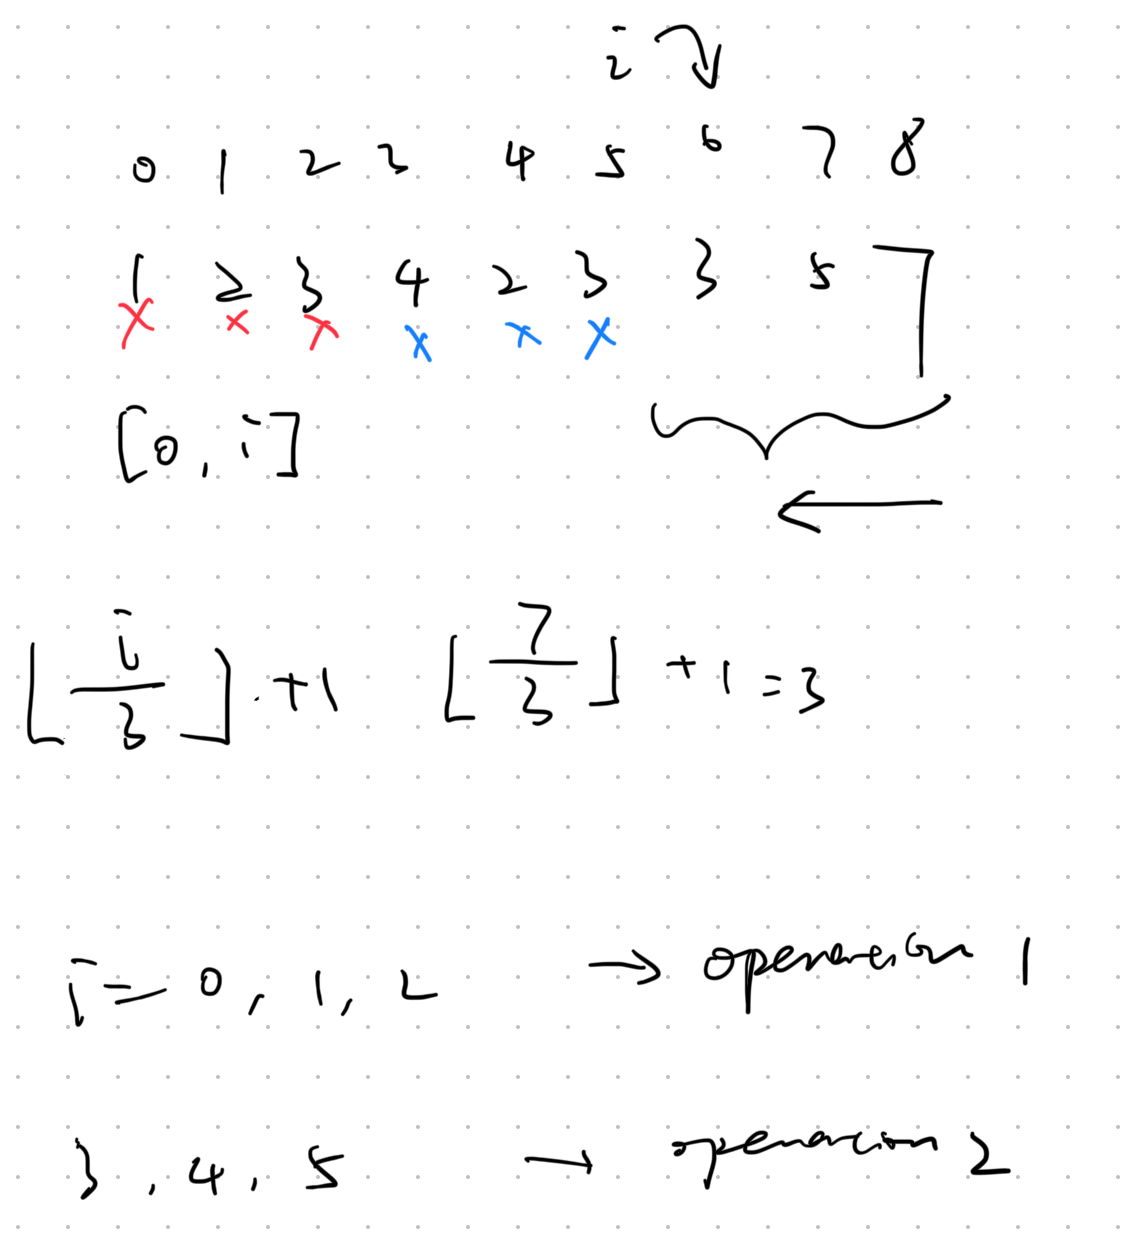 i
0 1 2 3 4 5 6 7 8
1 2 3 4 2 3 3 5 7
x x x x x x
[0, i]
⌊i/3⌋ + 1 ⌊7/3⌋ + 1 = 3
i = 0, 1, 2 → operacion 1
3, 4, 5 → operacion 2